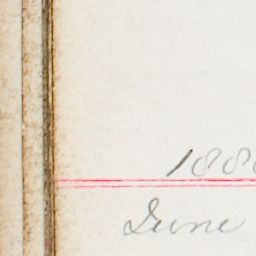 188
June